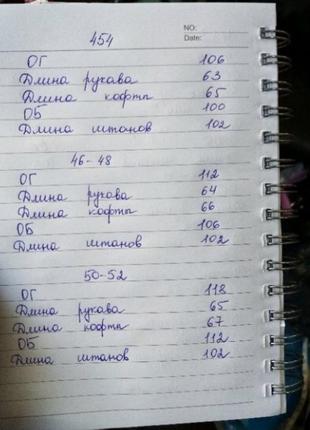 NO:
Date:
454
ОГ 106
Длина рукава 63
Длина кофты 65
ОБ 100
Длина штанов 102
46-48
ОГ 112
Длина рукава 64
Длина кофты 66
ОБ 106
Длина штанов 102
50-52
ОГ 118
Длина рукава 65
Длина кофты 67
ОБ 112
Длина штанов 102